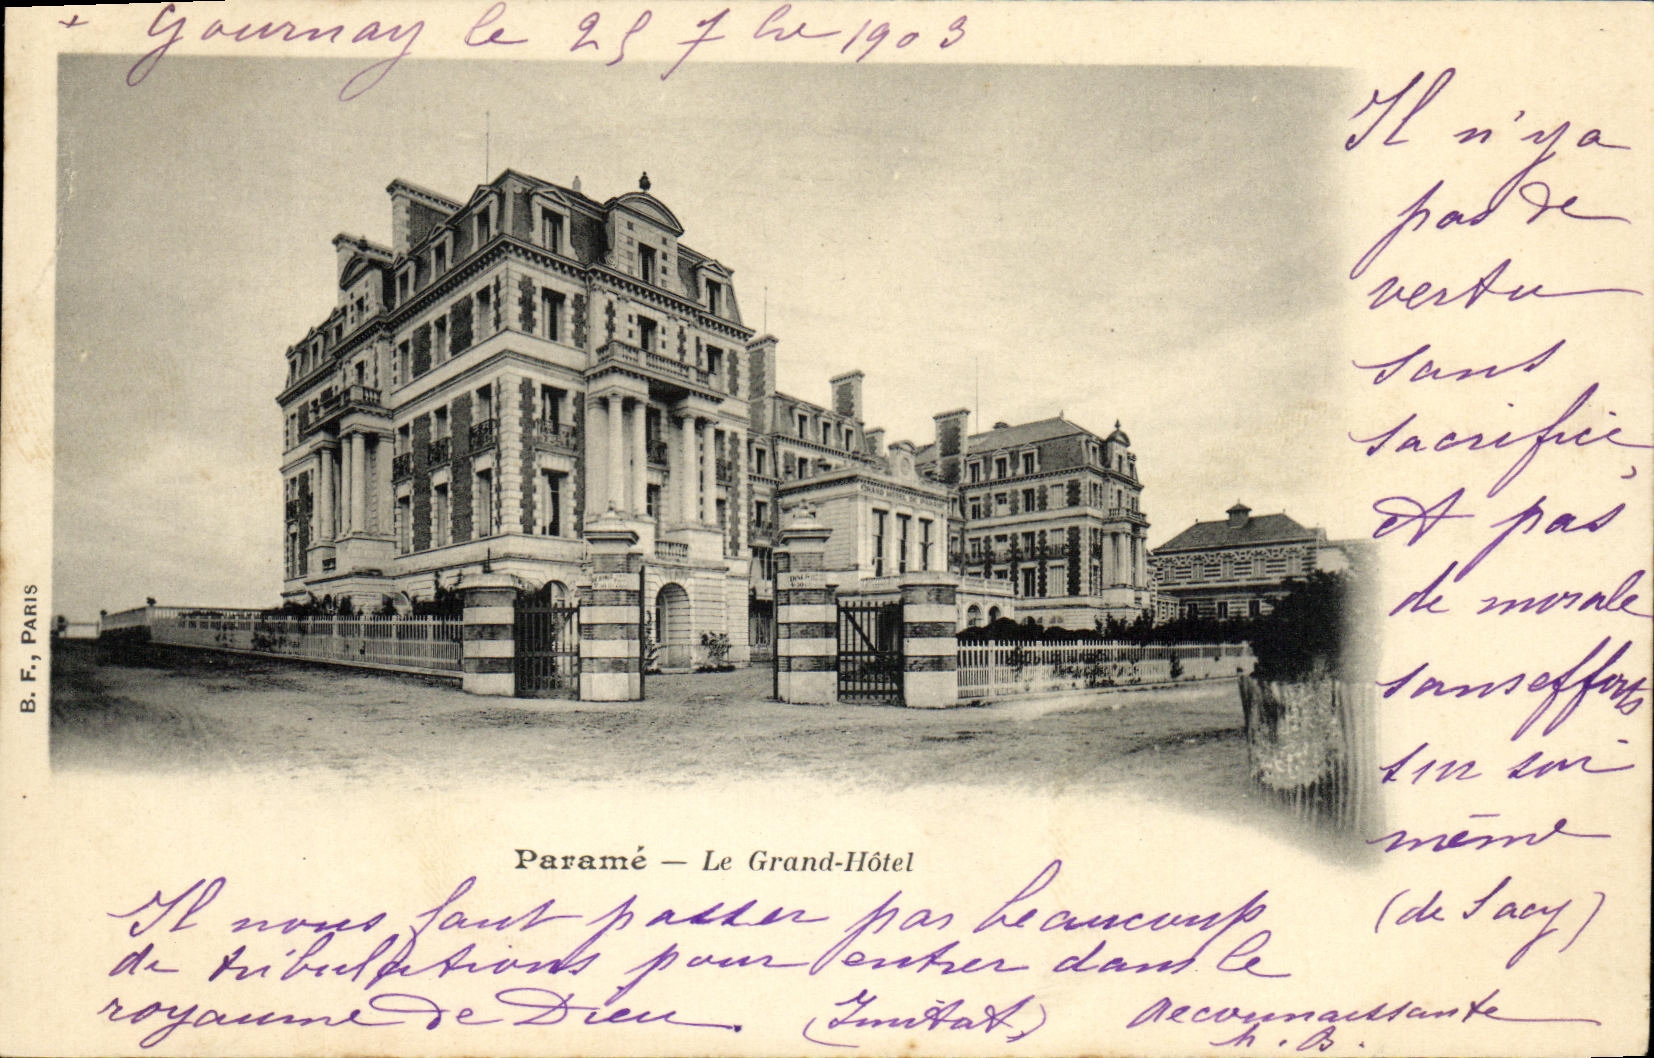 + Gournay le 25 7bre 1903
Il n'y a
pas de
vertu
sans
sacrifice,
et pas
de morale
sans efforts
sur soi
même
(de Sacy)
GRAND HOTEL DE
B. F., PARIS
Paramé — Le Grand-Hôtel
Il nous faut passer par beaucoup
de tribulations pour entrer dans le
royaume de Dieu. (Imitat.)
Reconnaissante
h. B.